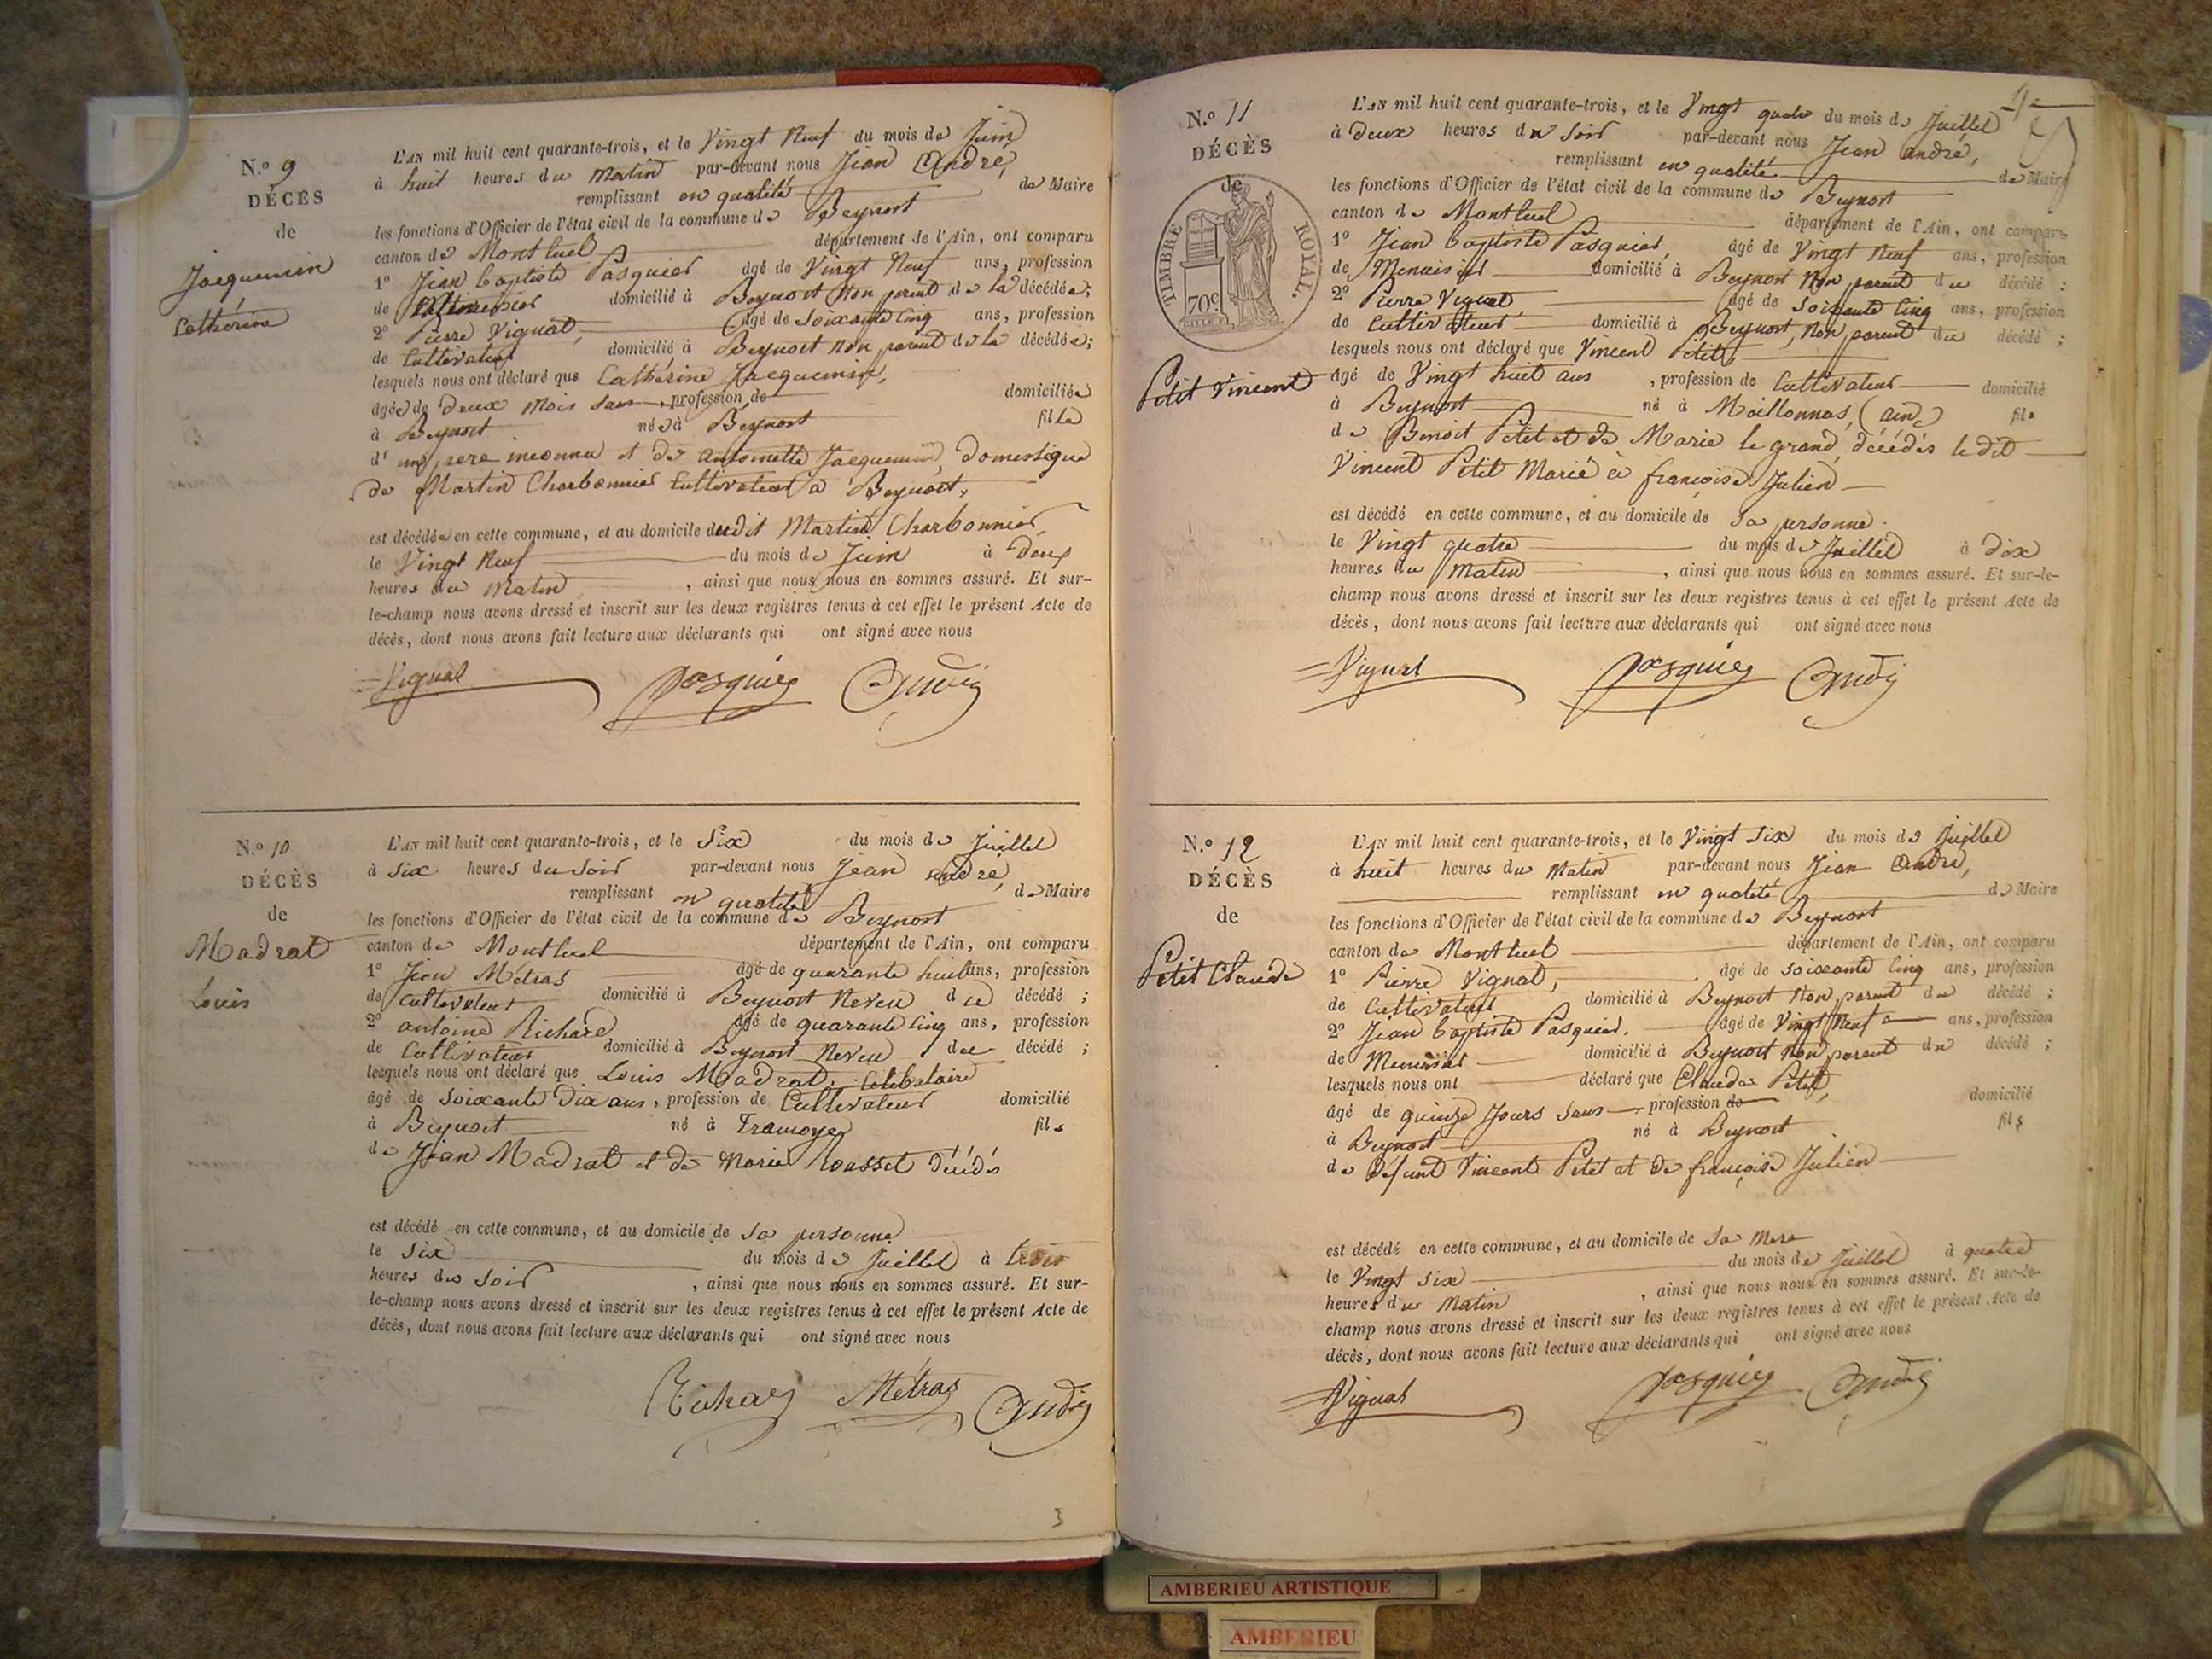 N.º 9
DÉCÈS
de
Jacquemin
Catherine
L'AN mil huit cent quarante-trois, et le Vingt Neuf du mois de Juin
à huit heures du Matin par-devant nous Jean André,
remplissant en qualité de Maire
les fonctions d'Officier de l'état civil de la commune de Beynost
canton de Montluel département de l'Ain, ont comparu
1º Jean Baptiste Pasquier âgé de Vingt Neuf ans, profession
de domicilié à Beynost Non parent de la décédée;
2º Pierre Vignat, âgé de Soixante Cinq ans, profession
de Cultivateur domicilié à Beynost Non parent de la décédée;
lesquels nous ont déclaré que Catherine Jacquemin,
âgée de Deux Mois Sans profession de domiciliée
à Beynost née à Beynost fille
d'un pere inconnu et de Antoinette Jacquemin, Domestique
de Martin Charbonnier Cultivateur a Beynost,
est décédée en cette commune, et au domicile dudit Martin Charbonnier,
le Vingt Neuf du mois de Juin à Deux
heures du Matin, ainsi que nous nous en sommes assuré. Et sur-
le-champ nous avons dressé et inscrit sur les deux registres tenus à cet effet le présent Acte de
décès, dont nous avons fait lecture aux déclarants qui ont signé avec nous
Vignat Pasquier André
N.º 10
DÉCÈS
de
Madrat
Louis
L'AN mil huit cent quarante-trois, et le Six du mois de Juillet
à Six heures du Soir par-devant nous Jean andré,
remplissant en qualité de Maire
les fonctions d'Officier de l'état civil de la commune de Beynost
canton de Montluel département de l'Ain, ont comparu
1º Jean Métras âgé de quarante huit ans, profession
de Cultivateur domicilié à Beynost Neveu du décédé ;
2º antoine Richard âgé de quarante Cinq ans, profession
de Cultivateur domicilié à Beynost Neveu du décédé ;
lesquels nous ont déclaré que Louis Madrat, Celibataire
âgé de Soixante Dix ans, profession de Cultivateur domicilié
à Beynost né à Tramoyes fils
de Jean Madrat et de Marie Rousset Décédés
est décédé en cette commune, et au domicile de Sa personne
le Six du mois de Juillet à trois
heures du Soir, ainsi que nous nous en sommes assuré. Et sur-
le-champ nous avons dressé et inscrit sur les deux registres tenus à cet effet le présent Acte de
décès, dont nous avons fait lecture aux déclarants qui ont signé avec nous
Richard Métras André
3
N.º 11
DÉCÈS
de
TIMBRE ROYAL.
70c
Petit Vincent
L'AN mil huit cent quarante-trois, et le Vingt quatre du mois de Juillet
à Deux heures du Soir par-devant nous Jean andré,
remplissant en qualité de Maire
les fonctions d'Officier de l'état civil de la commune de Beynost
canton de Montluel département de l'Ain, ont comparu
1º Jean Baptiste Pasquier, âgé de Vingt Neuf ans, profession
de Menuisier domicilié à Beynost Non parent du décédé ;
2º Pierre Vignat âgé de Soixante Cinq ans, profession
de Cultivateur domicilié à Beynost, Non parent du décédé ;
lesquels nous ont déclaré que Vincent Petit,
âgé de Vingt huit ans, profession de Cultivateur domicilié
à Beynost né à Meillonnas, (ain) fils
de Benoit Petit et de Marie le grand, décédés le dit
Vincent Petit Marié à françoise Julien
est décédé en cette commune, et au domicile de Sa personne.
le Vingt quatre du mois de Juillet à Dix
heures du Matin, ainsi que nous nous en sommes assuré. Et sur-le-
champ nous avons dressé et inscrit sur les deux registres tenus à cet effet le présent Acte de
décès, dont nous avons fait lecture aux déclarants qui ont signé avec nous
Vignat Pasquier André
N.º 12
DÉCÈS
de
Petit Claude
L'AN mil huit cent quarante-trois, et le Vingt Six du mois de Juillet
à huit heures du Matin par-devant nous Jean André,
remplissant en qualité de Maire
les fonctions d'Officier de l'état civil de la commune de Beynost
canton de Montluel département de l'Ain, ont comparu
1º Pierre Vignat, âgé de Soixante Cinq ans, profession
de Cultivateur domicilié à Beynost Non parent du décédé ;
2º Jean Baptiste Pasquier. âgé de Vingt Neuf ans, profession
de Menuisier domicilié à Beynost Non parent du décédé ;
lesquels nous ont déclaré que Claude Petit,
âgé de quinze Jours Sans profession de domicilié
à Beynost né à Beynost fils
de Defunt Vincent Petit et de françoise Julien
est décédé en cette commune, et au domicile de Sa Mere
le Vingt Six du mois de Juillet à quatre
heures du Matin, ainsi que nous nous en sommes assuré. Et sur-le-
champ nous avons dressé et inscrit sur les deux registres tenus à cet effet le présent Acte de
décès, dont nous avons fait lecture aux déclarants qui ont signé avec nous
Vignat Pasquier André
AMBERIEU ARTISTIQUE
AMBERIEU